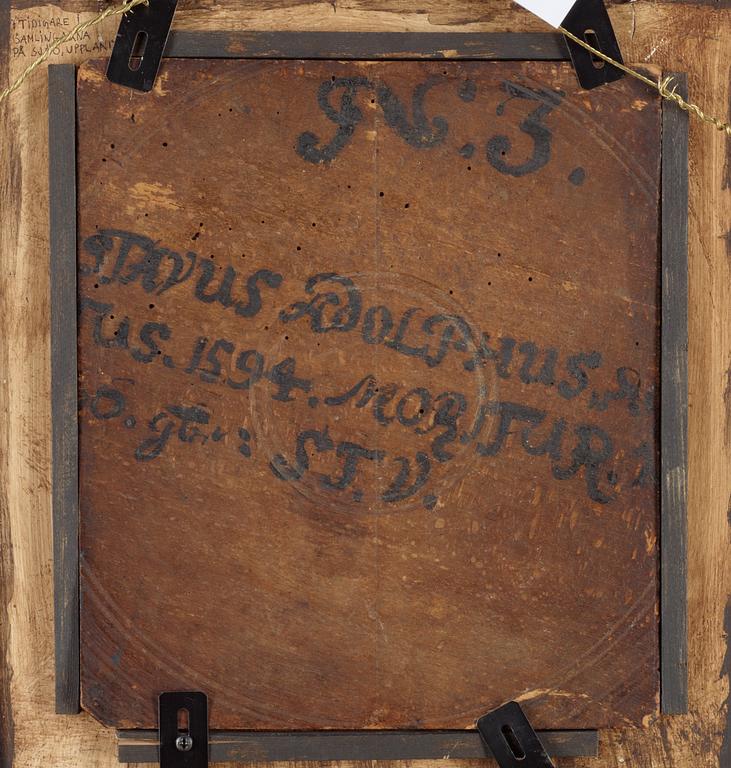 TIDIGARE I
SAMLINGARNA
PÅ SJÖÖ, UPPLAND
N: 3.
STAVUS ADOLPHUS,
TUS. 1594. MORITUR.
o. gt.:
ST. V.